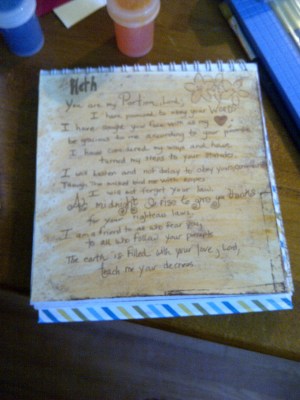 Heth
You are my Portion, Lord;
I have promised to obey your words
I have sought your face with all my
be gracious to me according to your promise
I have considered my ways and have
turned my steps to your statutes.
I will hasten and not delay to obey your commands
Though the wicked bind me with ropes
I will not forget your law.
At midnight I rise to give you thanks
for your righteous laws.
I am a friend to all who fear you
to all who follow your precepts
The earth is filled with your love, Lord,
teach me your decrees.